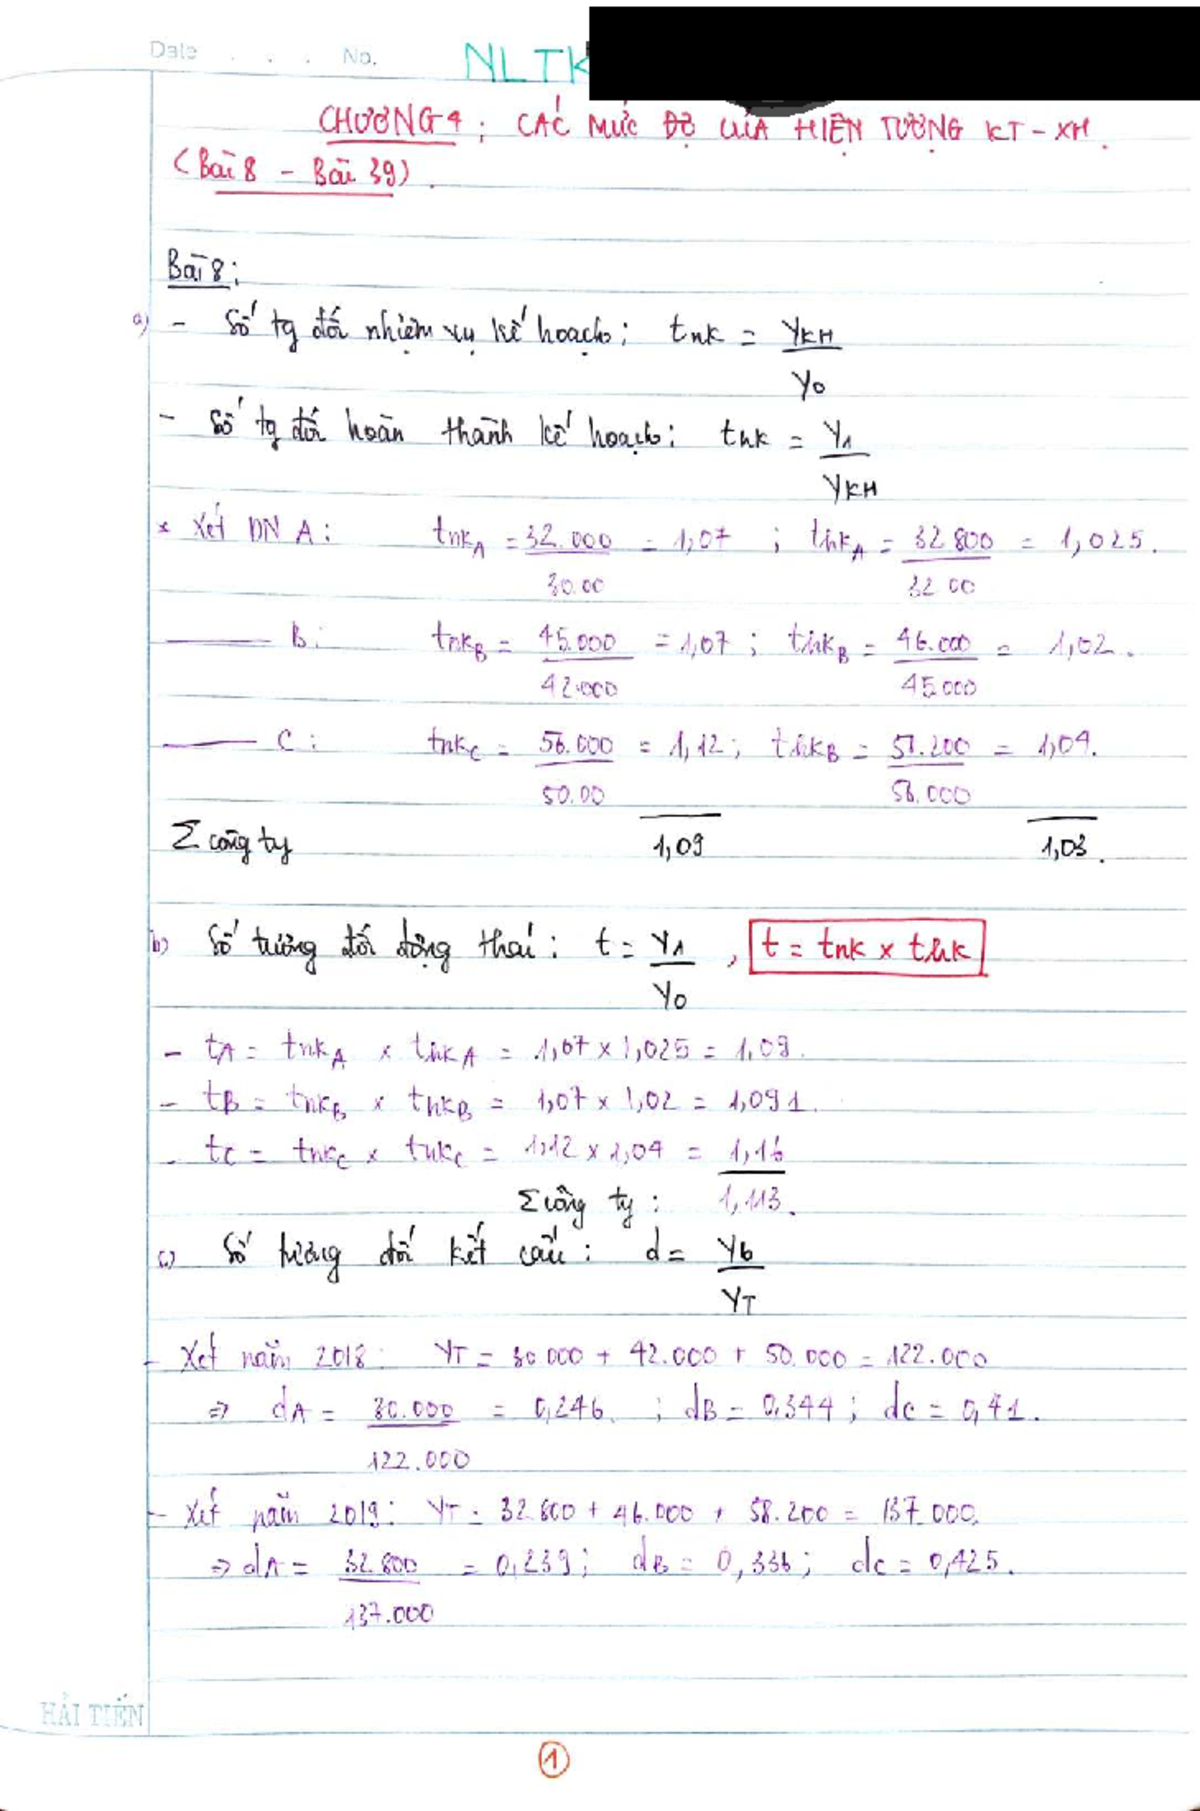 Date . . . No.
NLTK
CHƯƠNG 4 : CÁC MỨC ĐỘ CỦA HIỆN TƯỢNG KT - XH.
(Bài 8 - Bài 39).
Bài 8:
a) - Số tg đối nhiệm vụ kế hoạch: tnk = YKH / Y0
- Số tg đối hoàn thành kế hoạch: thk = Y1 / YKH
* Xét DN A: tnkA = 32.000 / 30.00 = 1,07 ; thkA = 32 800 / 32 00 = 1,025.
B: tnkB = 45.000 / 42.000 = 1,07 ; thkB = 46.000 / 45.000 = 1,02.
C: tnkC = 56.000 / 50.00 = 1,12; thkB = 58.200 / 56.000 = 1,04.
Σ công ty 1,09 1,03.
b) Số tương đối động thái: t = Y1 / Y0 , t = tnk x thk
- tA = tnkA x thkA = 1,07 x 1,025 = 1,09.
- tB = tnkB x thkB = 1,07 x 1,02 = 1,091.
- tC = tnkC x thkC = 1,12 x 1,04 = 1,16
Σ công ty : 1,113.
c) Số tương đối kết cấu: d = Yb / YT
- Xét năm 2018: YT = 30 000 + 42.000 + 50.000 = 122.000
⇒ dA = 30.000 / 122.000 = 0,246. ; dB = 0,344 ; dC = 0,41.
- Xét năm 2019: YT = 32.800 + 46.000 + 58.200 = 137.000.
⇒ dA = 32.800 / 137.000 = 0,239; dB = 0,336; dC = 0,425.
HẢI TIẾN
1